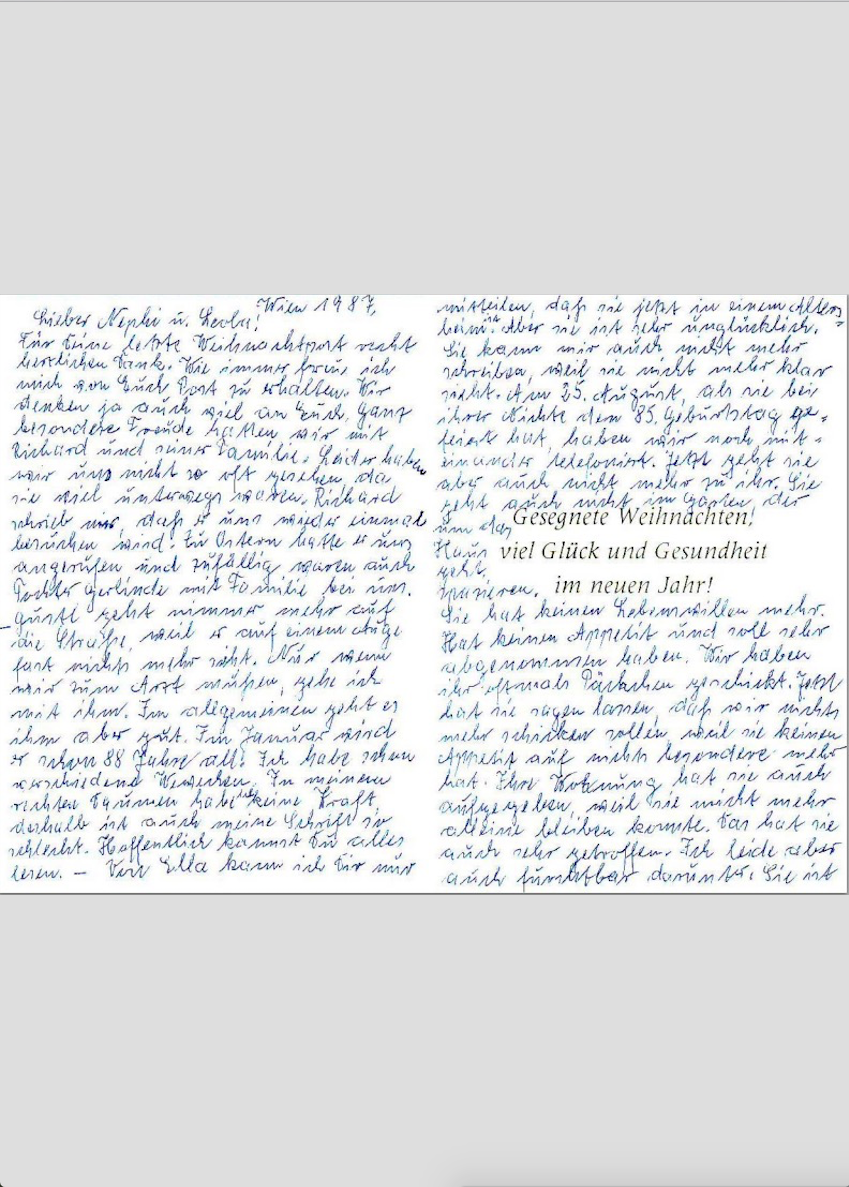 Wien 1987,
Lieber Nephi u. Leola!
Für Deine letzte Weihnachtspost recht
herzlichen Dank. Wie immer freue ich
mich von Euch Post zu erhalten. Wir
denken ja auch viel an Euch. Ganz
besondere Freude hatten wir mit
Richard und seiner Familie. Leider haben
wir uns nicht so oft gesehen, da
sie viel unterwegs waren. Richard
schrieb mir, daß er uns wieder einmal
besuchen wird. Zu Ostern hatte er uns
angerufen und zufällig waren auch
Tochter Gerlinde mit Familie bei uns.
Gustl geht nimmer mehr auf
die Straße, weil er auf einem Auge
fast nichts mehr sieht. Nur wenn
wir zum Arzt müßen, gehe ich
mit ihm. Im allgemeinen geht es
ihm aber gut. Im Januar wird
er schon 88 Jahre alt. Ich habe schon
verschiedene Wewechen. In meinem
rechten Daumen habe ich keine Kraft,
deshalb ist auch meine Schrift so
schlecht. Hoffentlich kannst Du alles
lesen. — Von Ella kann ich Dir nur
mitteilen, daß sie jetzt in einem Alters-
heim ist. Aber sie ist sehr unglücklich.
Sie kann mir auch nicht mehr
schreiben, weil sie nicht mehr klar
sieht. Am 25. August, als sie bei
ihrer Nichte den 85. Geburtstag ge-
feiert hat, haben wir noch mit-
einander telefoniert. Jetzt geht sie
aber auch nicht mehr zu ihr. Sie
geht auch nicht im Garten, der
um das
Haus
geht,
spazieren.
Gesegnete Weihnachten!
viel Glück und Gesundheit
im neuen Jahr!
Sie hat keinen Lebenswillen mehr.
Hat keinen Appetit und soll sehr
abgenommen haben. Wir haben
ihr oftmals Päckchen geschickt. Jetzt
hat sie sagen lassen daß wir nichts
mehr schicken sollen, weil sie keinen
Appetit auf nichts besondere mehr
hat. Ihre Wohnung hat sie auch
aufgegeben, weil sie nicht mehr
alleine bleiben konnte. Das hat sie
auch sehr getroffen. Ich leide aber
auch furchtbar darunter. Sie ist